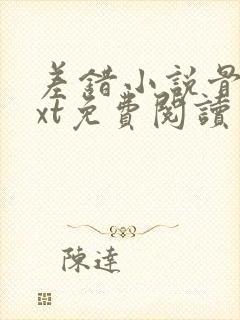 差錯小説最
xt免費閱讀
陳達